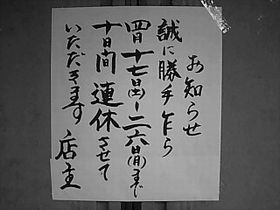 お知らせ
誠に勝手乍ら
四月十七日(出)〜二六日(月)まで
十日間連休させて
いただきます 店主